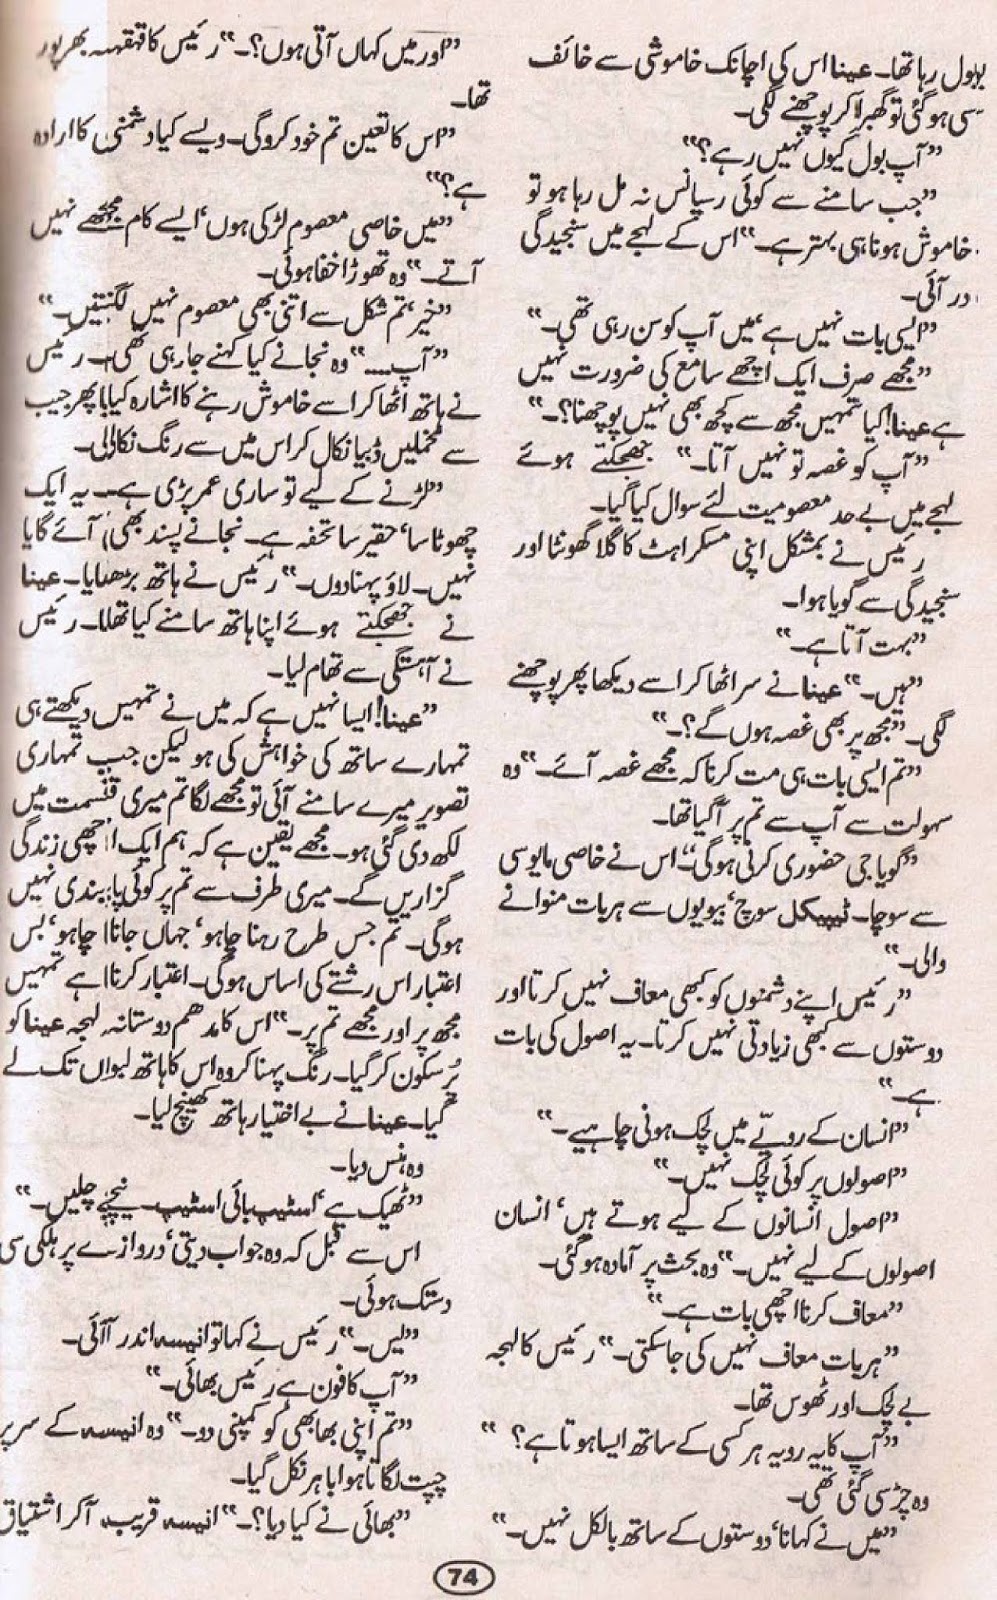 بول رہا تھا۔ عینا اس کی اچانک خاموشی سے خائف
سی ہوگئی تو گھبرا کر پوچھنے لگی۔
"آپ بول کیوں نہیں رہے؟"
"جب سامنے سے کوئی رسپانس نہ مل رہا ہو تو
خاموش ہونا ہی بہتر ہے۔" اس کے لہجے میں سنجیدگی
در آئی۔
"ایسی بات نہیں ہے، میں آپ کو سن رہی تھی۔"
"مجھے صرف ایک اچھے سامع کی ضرورت نہیں
ہے عینا! کیا تمہیں مجھ سے کچھ بھی نہیں پوچھنا؟۔"
"آپ کو غصہ تو نہیں آتا۔" جھجکتے ہوئے
لہجے میں بے حد معصومیت لئے سوال کیا گیا۔
رئیس نے بمشکل اپنی مسکراہٹ کا گلا گھونٹا اور
سنجیدگی سے گویا ہوا۔
"بہت آتا ہے۔"
"ہیں۔" عینا نے سر اٹھا کر اسے دیکھا پھر پوچھنے
لگی۔ "مجھ پر بھی غصہ ہوں گے؟۔"
"تم ایسی بات ہی مت کرنا کہ مجھے غصہ آئے۔" وہ
سہولت سے آپ سے تم پر آگیا تھا۔
"گویا جی حضوری کرنی ہوگی" اس نے خاصی مایوسی
سے سوچا۔ ٹیپیکل سوچ، بیویوں سے ہر بات منوانے
والی۔"
"رئیس اپنے دشمنوں کو کبھی معاف نہیں کرتا اور
دوستوں سے کبھی زیادتی نہیں کرتا۔ یہ اصول کی بات
ہے۔"
"انسان کے رویے میں لچک ہونی چاہیے۔"
"اصولوں پر کوئی لچک نہیں۔"
"اصول انسانوں کے لیے ہوتے ہیں، انسان
اصولوں کے لیے نہیں۔" وہ بحث پر آمادہ ہوگئی۔
"معاف کرنا اچھی بات ہے۔"
"ہر بات معاف نہیں کی جاسکتی۔" رئیس کا لہجہ
بے لچک اور ٹھوس تھا۔
"آپ کا یہ رویہ ہر کسی کے ساتھ ایسا ہوتا ہے؟"
وہ چڑسی گئی تھی۔
"میں نے کہا نا، دوستوں کے ساتھ بالکل نہیں۔"
"اور میں کہاں آتی ہوں؟۔" رئیس کا قہقہہ بھرپور
تھا۔
"اس کا تعین تم خود کروگی۔ ویسے کیا دشمنی کا ارادہ
ہے؟"
"میں خاصی معصوم لڑکی ہوں، ایسے کام مجھے نہیں
آتے۔" وہ تھوڑا خفا ہوئی۔
"خیر، تم شکل سے اتنی بھی معصوم نہیں لگتیں۔"
"آپ...." وہ نجانے کیا کہنے جارہی تھی۔ رئیس
نے ہاتھ اٹھا کر اسے خاموش رہنے کا اشارہ کیا پھر جیب
سے مخملیں ڈبیا نکال کر اس میں سے رنگ نکالی۔
"لڑنے کے لیے تو ساری عمر پڑی ہے۔ یہ ایک
چھوٹا سا، حقیر سا تحفہ ہے۔ نجانے پسند بھی آئے گا یا
نہیں۔ لاؤ پہنا دوں۔" رئیس نے ہاتھ بڑھایا۔ عینا
نے جھجکتے ہوئے اپنا ہاتھ سامنے کیا تھا۔ رئیس
نے آہستگی سے تھام لیا۔
"عینا! ایسا نہیں ہے کہ میں نے تمہیں دیکھتے ہی
تمہارے ساتھ کی خواہش کی ہو لیکن جب تمہاری
تصویر میرے سامنے آئی تو مجھے لگا تم میری قسمت میں
لکھ دی گئی ہو۔ مجھے یقین ہے کہ ہم ایک اچھی زندگی
گزاریں گے۔ میری طرف سے تم پر کوئی پابندی نہیں
ہوگی۔ تم جس طرح رہنا چاہو، جہاں جانا چاہو، بس
اعتبار اس رشتے کی اساس ہوگی۔ اعتبار کرنا ہے تمہیں
مجھ پر اور مجھے تم پر۔" اس کا مدھم دوستانہ لہجہ عینا کو
پُرسکون کرگیا۔ رنگ پہنا کر وہ اس کا ہاتھ لبوں تک لے
گیا۔ عینا نے بے اختیار ہاتھ کھینچ لیا۔
وہ ہنس دیا۔
"ٹھیک ہے، اسٹیپ بائی اسٹیپ۔ نیچے چلیں۔"
اس سے قبل کہ وہ جواب دیتی، دروازے پر ہلکی سی
دستک ہوئی۔
"یس۔" رئیس نے کہا تو انیسہ اندر آئی۔
"آپ کا فون ہے رئیس بھائی۔"
"تم اپنی بھابھی کو کمپنی دو۔" وہ انیسہ کے سر پر
چپت لگاتا ہوا باہر نکل گیا۔
"بھائی نے کیا دیا؟۔" انیسہ قریب آکر اشتیاق
74